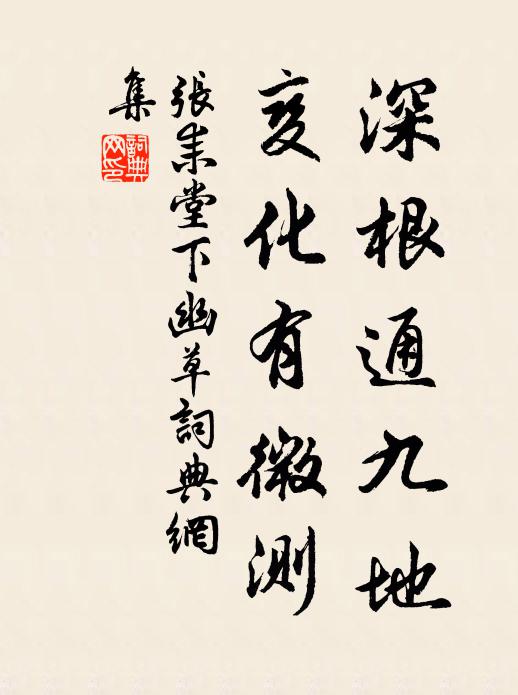 深根通九地
変化有微測
張耒堂下幽草詞典網
集
詞典
网印